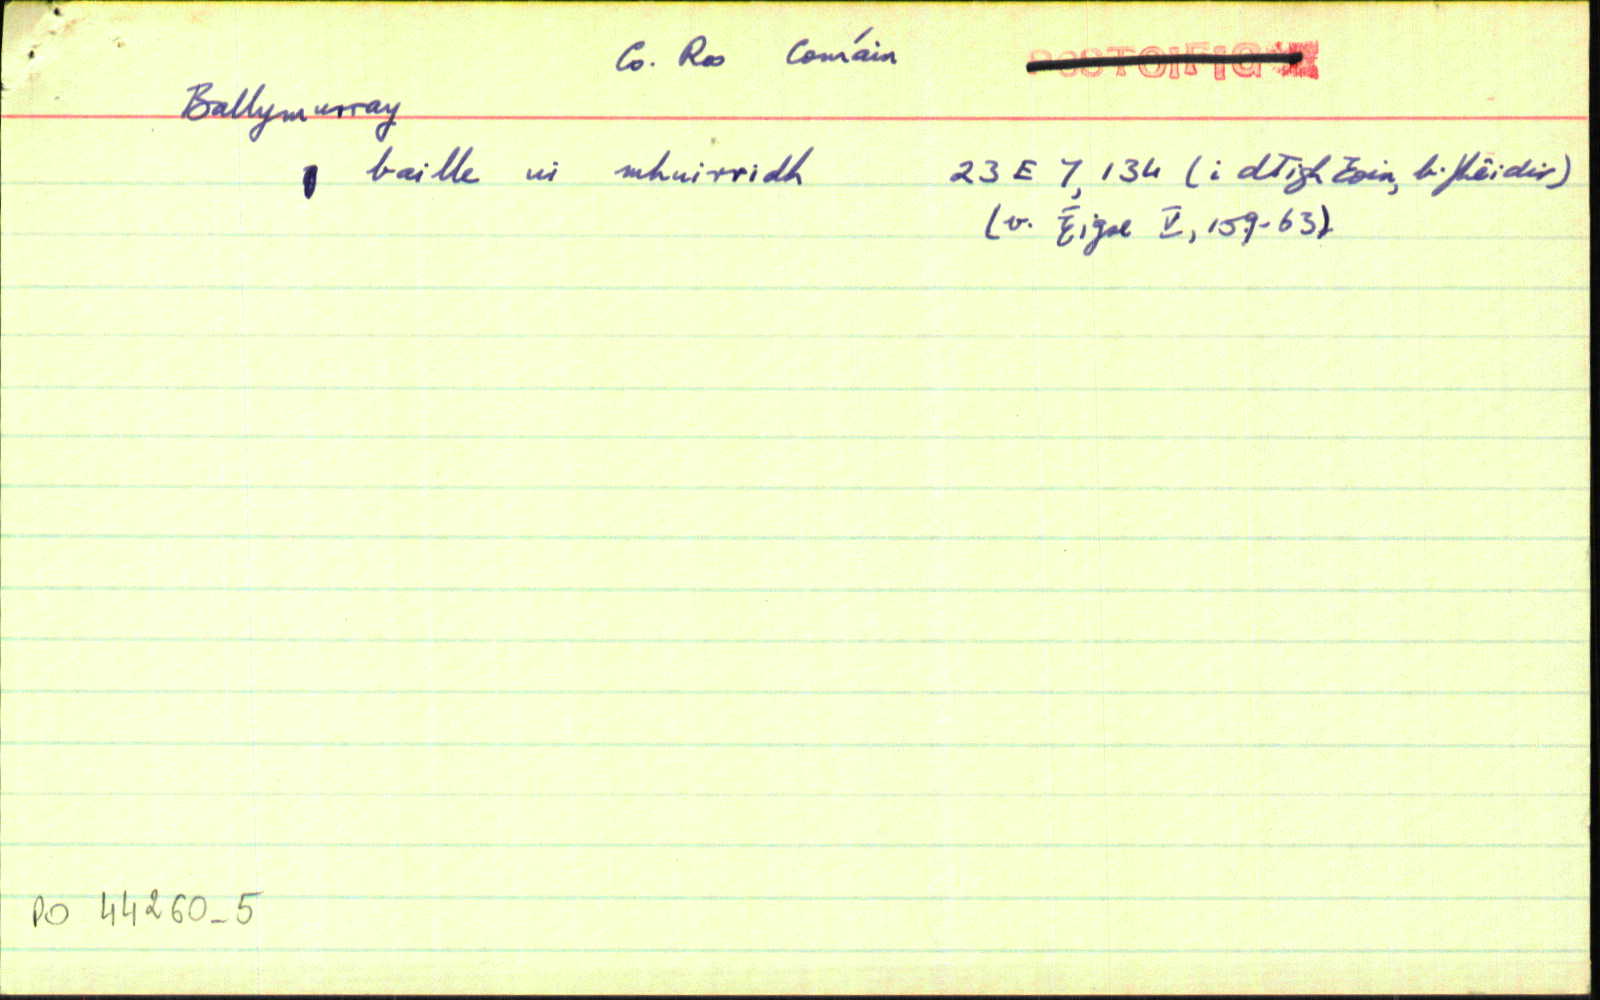 Co. Ros Comáin
POSTOIFIG
Ballymurray
baille ui mhuirridh 23 E 7, 134 (i dTigh Eoin, b'fhéidir)
(v. Éigse V, 159-63)
PO 44260_5